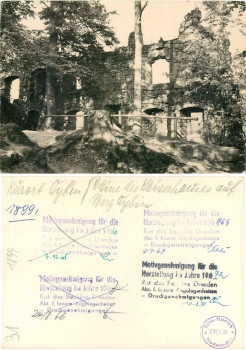 Kurort Oybin / Ruine des Kaiserhauses auf
Berg Oybin
1899
Motivgenehmigung für die
Herstellung im Jahre 1966
Rat des Bezirkes Dresden
Abt. f. Innere Angelegenheiten
- Druckgenehmigungen -
Motivgenehmigung für die
Herstellung im Jahre 1969
Rat des Bezirkes Dresden
Abt. f. Innere Angelegenheiten
- Druckgenehmigungen -
1999
Motivgenehmigung für die
Herstellung im Jahre 196
Rat des Bezirkes Dresden
Abt. f. Innere Angelegenheiten
- Druckgenehmigungen -
26.8.66
Motivgenehmigung für die
Herstellung im Jahre 1972
Rat des Bezirkes Dresden
Abt. f. Innere Angelegenheiten
- Druckgenehmigungen -